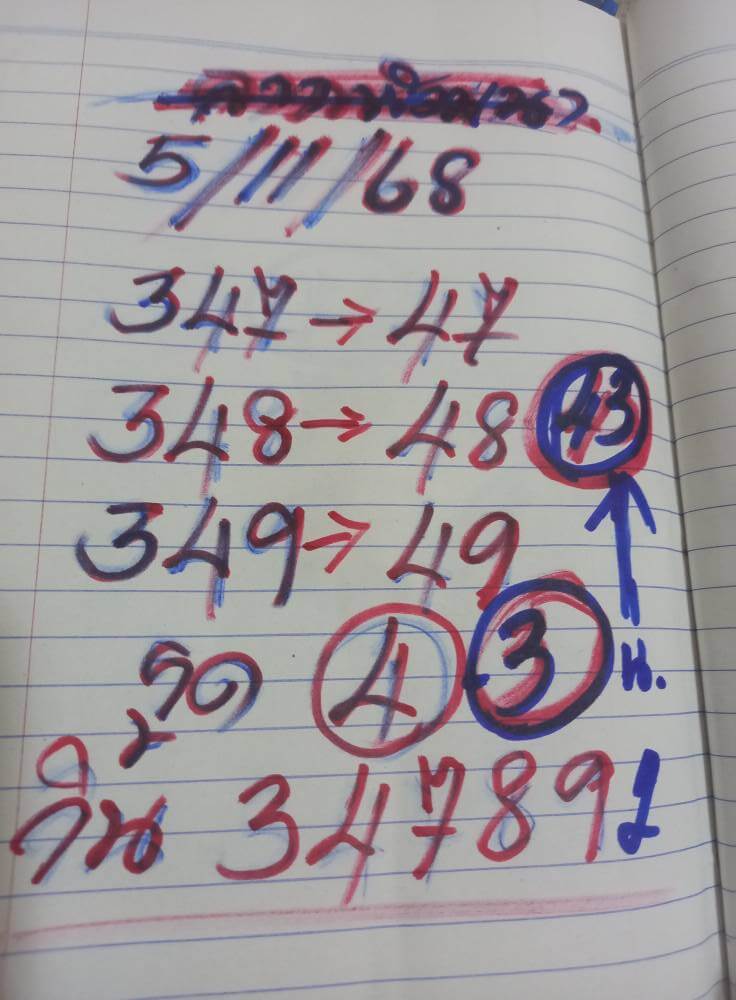 5/11/68
347→47
348→48 43
349→49
รูด 4 3 น.
วิน 34789